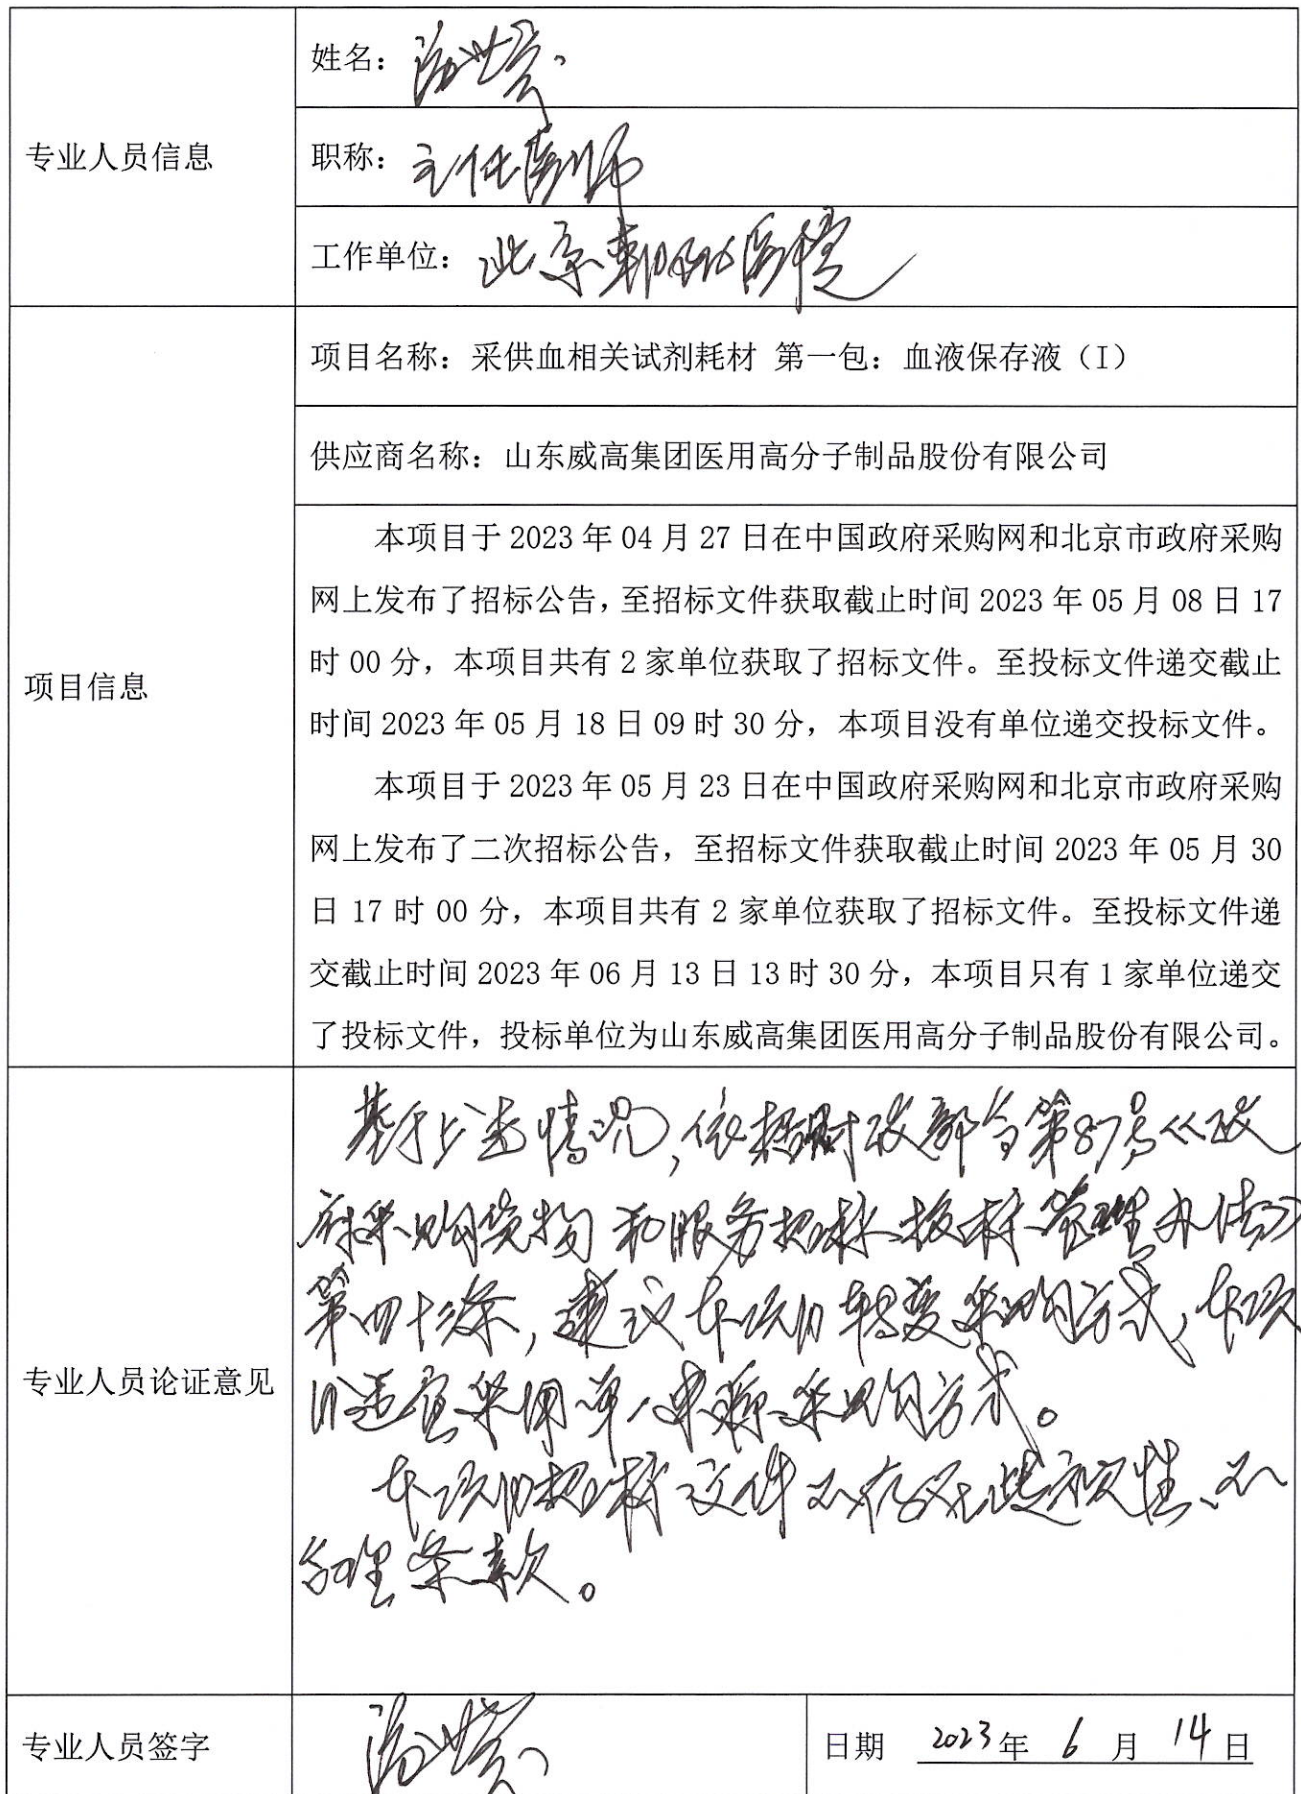 专业人员信息
姓名：
职称：主任医师
工作单位：北京朝阳医院
项目信息
项目名称：采供血相关试剂耗材 第一包：血液保存液（I）
供应商名称：山东威高集团医用高分子制品股份有限公司
本项目于 2023 年 04 月 27 日在中国政府采购网和北京市政府采购
网上发布了招标公告，至招标文件获取截止时间 2023 年 05 月 08 日 17
时 00 分，本项目共有 2 家单位获取了招标文件。至投标文件递交截止
时间 2023 年 05 月 18 日 09 时 30 分，本项目没有单位递交投标文件。
本项目于 2023 年 05 月 23 日在中国政府采购网和北京市政府采购
网上发布了二次招标公告，至招标文件获取截止时间 2023 年 05 月 30
日 17 时 00 分，本项目共有 2 家单位获取了招标文件。至投标文件递
交截止时间 2023 年 06 月 13 日 13 时 30 分，本项目只有 1 家单位递交
了投标文件，投标单位为山东威高集团医用高分子制品股份有限公司。
专业人员论证意见
基于上述情况，依据财政部令第87号《政
府采购货物和服务招标投标管理办法》
第四十三条，建议本项目转变采购方式，本项
目适宜采用单一来源采购方式。
本项目招标文件不存在歧视性、不
合理条款。
专业人员签字
日期 2023年 6 月 14日